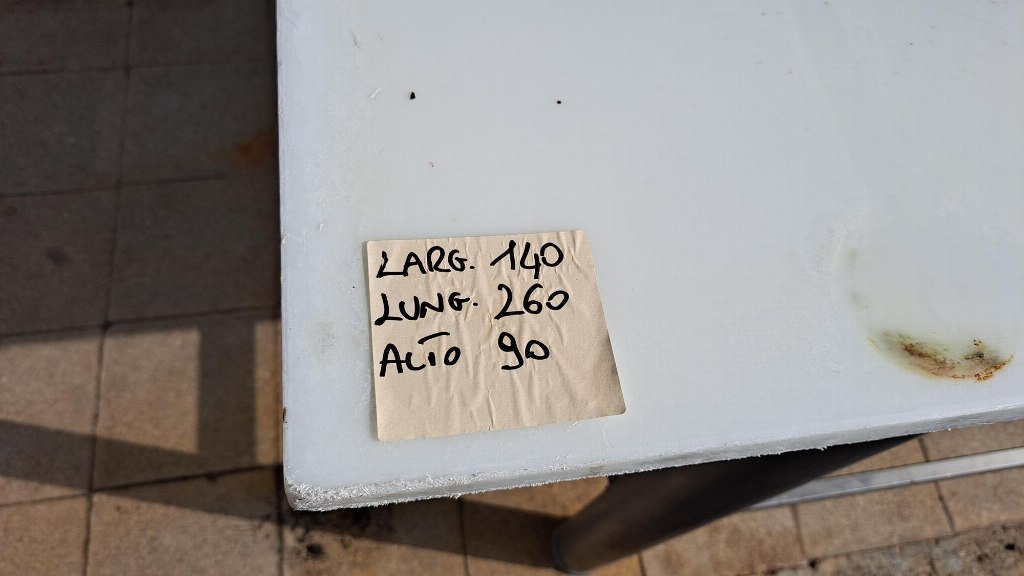 LARG. 140
LUNG. 260
ALTO 90